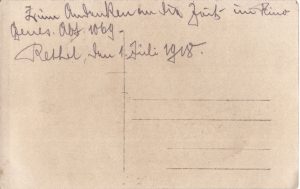 Zum Andenken an die Zeit im Kino
Genes. Abt. 1069.
Rethel, den 1. Juli 1918.